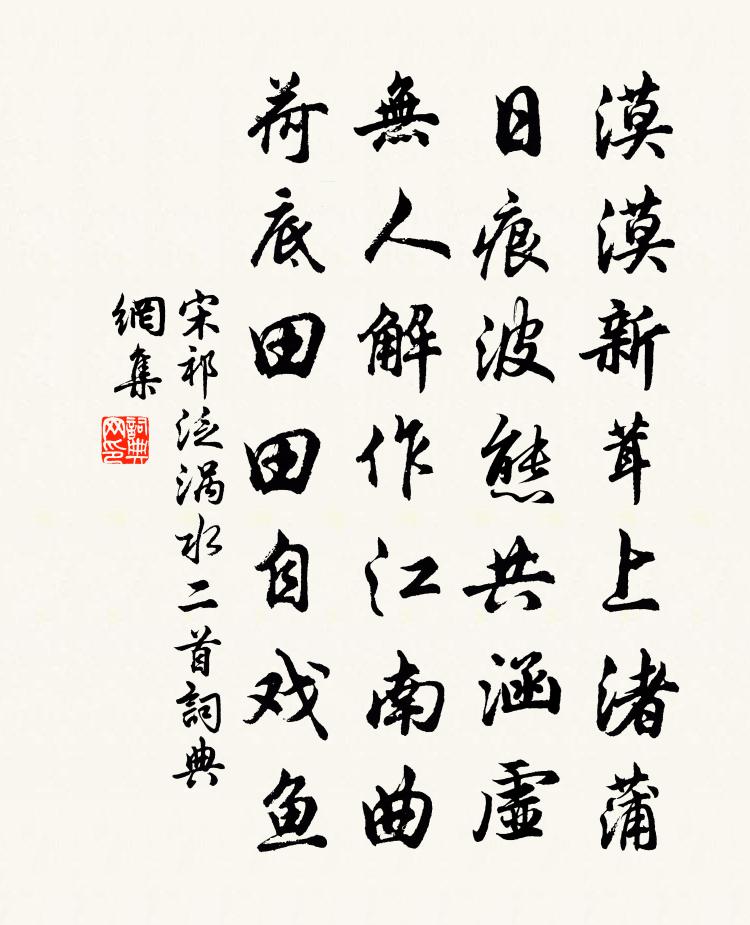 漠漠新茸上渚蒲
日痕波態共涵虛
無人解作江南曲
荷底田田自戏鱼
宋祁泛涡水二首詞典
網集
詞典
网印